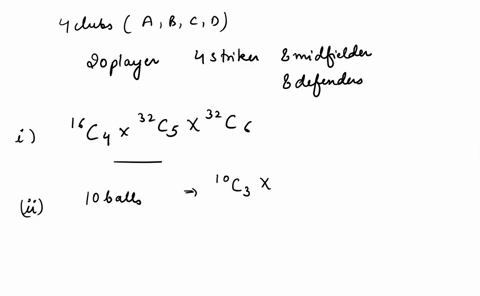 4 clubs ( A , B , C , D )
20 player 4 striker 8 midfielder
8 defenders
i ) ¹⁶C₄ x ³²C₅ x ³²C₆
(ii) 10 balls ⇒ ¹⁰C₃ x